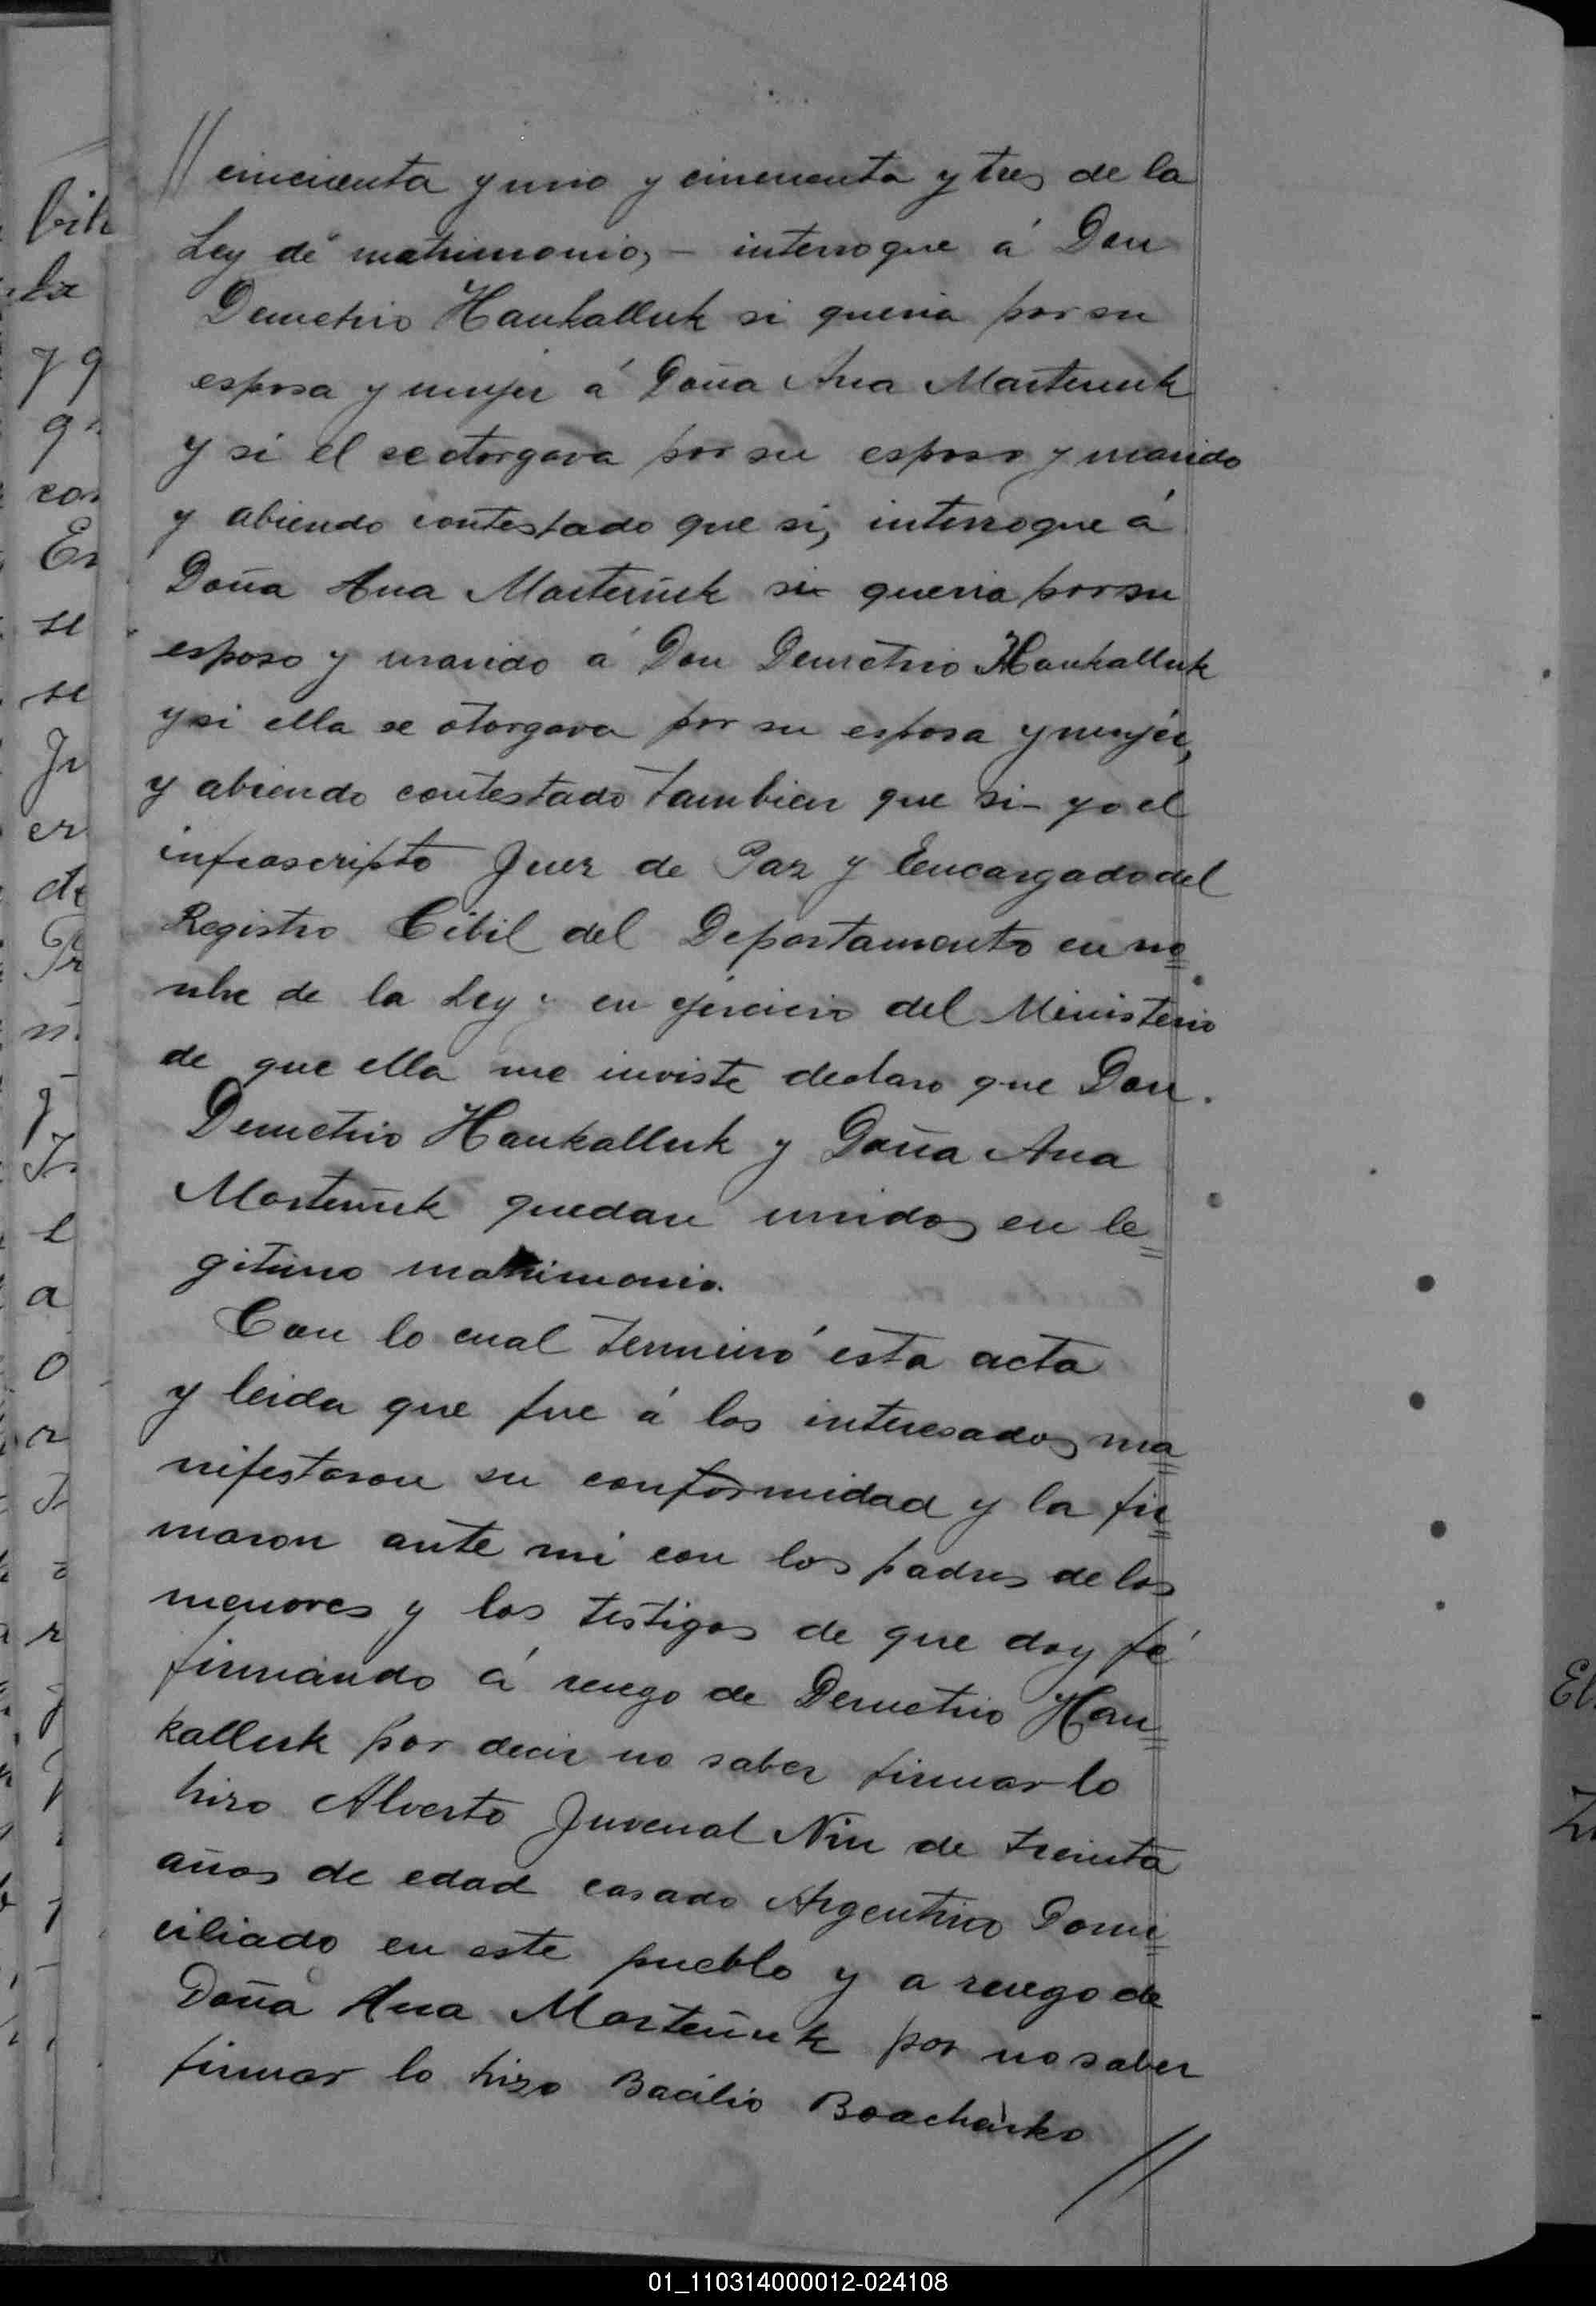 // cincicuenta y uno y cincuenta y tres de la
Ley de matrimonio, – interrogue á Don
Demetrio Hankalluk si queria por su
esposa y mujer á Doña Ana Marteniuk
y si el se otorgava por su esposo y marido
y abiendo contestado que si, interrogue á
Doña Ana Marteniuk si queria por su
esposo y marido á Don Demetrio Hankalluk
y si ella se otorgava por su esposa y mujer,
y abiendo contestado tambien que si – yo el
infrascripto Juez de Paz y Encargado del
Registro Cibil del Departamento en no=
nbre de la Ley y en ejercicio del Ministerio
de que ella me inviste declaro que Don
Demetrio Hankalluk y Doña Ana
Marteniuk quedan unidos en le=
gitimo matrimonio.
Con lo cual terminó esta acta
y leida que fue á los interesados ma=
nifestaron su conformidad y la fir=
maron ante mi con los padres de los
menores y los testigos de que doy fé
firmando á ruego de Demetrio Han=
kalluk por decir no saber firmar lo
hizo Alverto Juvenal Nin de treinta
años de edad casado Argentino Domi=
ciliado en este pueblo y a ruego de
Doña Ana Marteniuk por no saber
firmar lo hizo Bacilio Boachenko
//
01_110314000012-024108